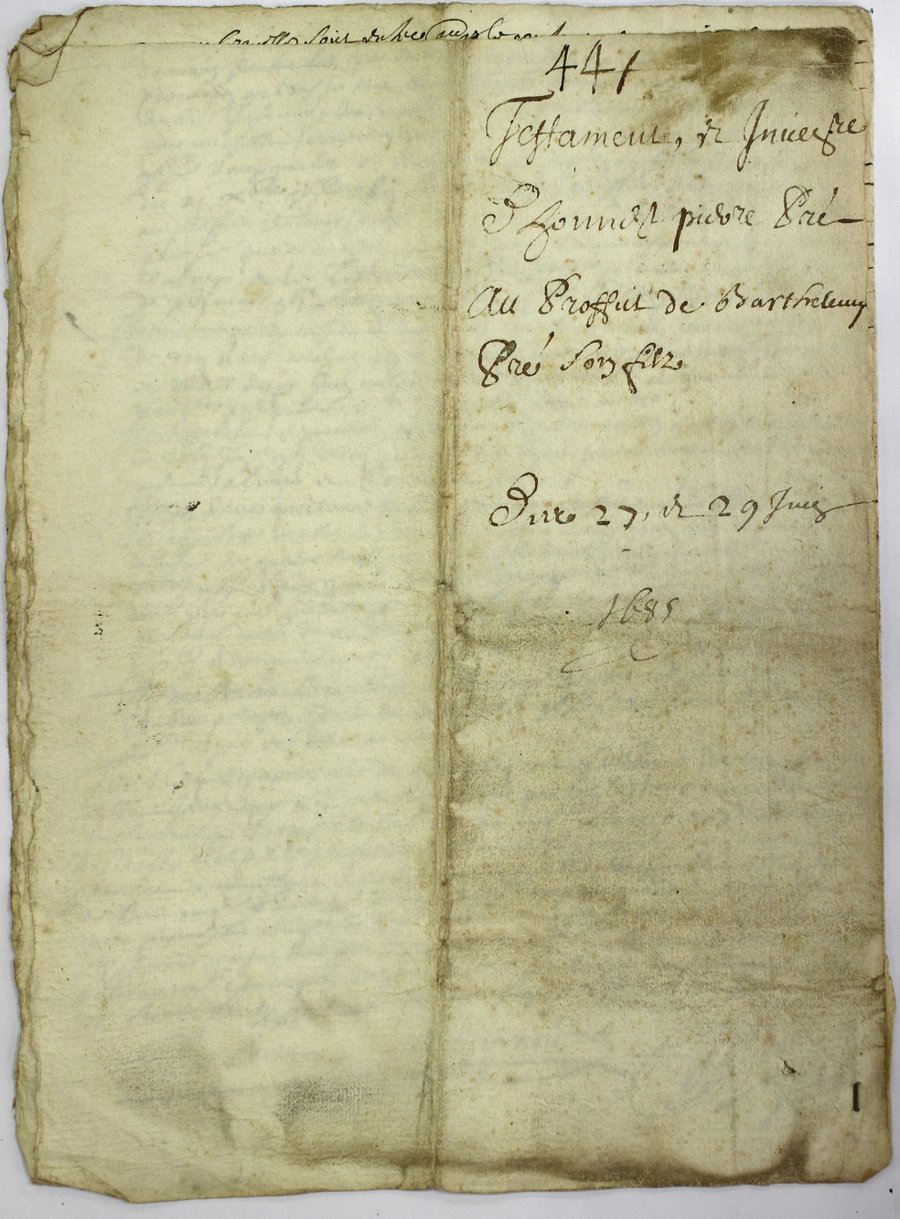 441
Testament, et Inue^re
D honnest pierre Pré
Au Proffict de Barthelemy
Pré son filz
Du 27, et 29 Juin
1685